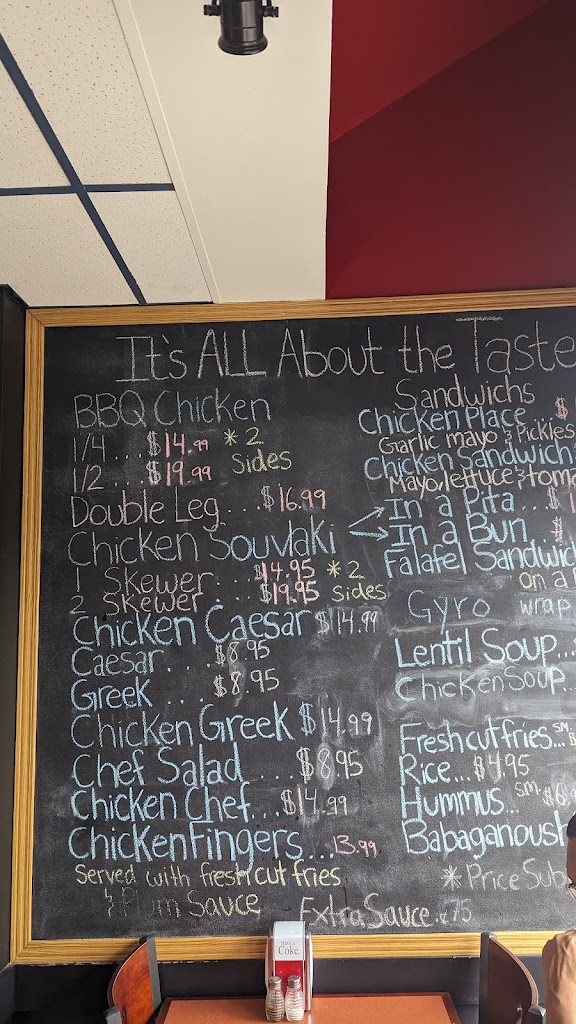 It's ALL About the Taste
BBQ Chicken
1/4 ... $14.99 *2
1/2 ... $19.99 Sides
Double Leg ... $16.99
Chicken Souvlaki
1 Skewer ... $14.95 *2
2 Skewer ... $19.95 Sides
Chicken Caesar $14.99
Caesar ... $8.95
Greek ... $8.95
Chicken Greek $14.99
Chef Salad .... $8.95
Chicken Chef... $14.99
Chicken Fingers... 13.99
Served with fresh cut fries
& Plum Sauce
Extra Sauce .75
Sandwichs
Chicken Place ... $
Garlic mayo & Pickles
Chicken Sandwich
Mayo, lettuce &
In a Pita ... $
In a Bun ... $
Falafel
on a
Gyro wrap
Lentil Soup...
Chicken Soup...
Fresh cut fries... sm.
Rice... $4.95
Hummus... sm. $6.
Babaganoush
*Price
Have a
Coke